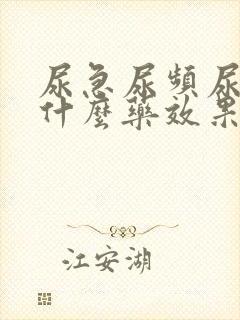 尿急尿頻尿
什麼藥效果
江安湖